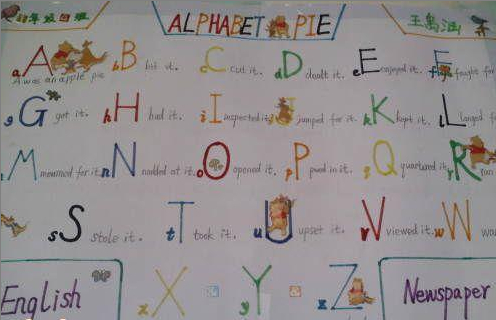 年级四班 ALPHABET PIE 王禹涵
aA A was an apple pie bB bit it. cC cut it. dD dealt it. eE enjoyed it. fF fought for
gG got it. hH had it. iI inspected it jJ jumped for it. kK kept it. lL longed f
M mourned for it. nN nodded at it. oO opened it. pP peed in it. qQ quartered it. rR ran
sS stole it. tT took it. uU upset it. vV viewed it. wW wa
English xX yY zZ Newspaper